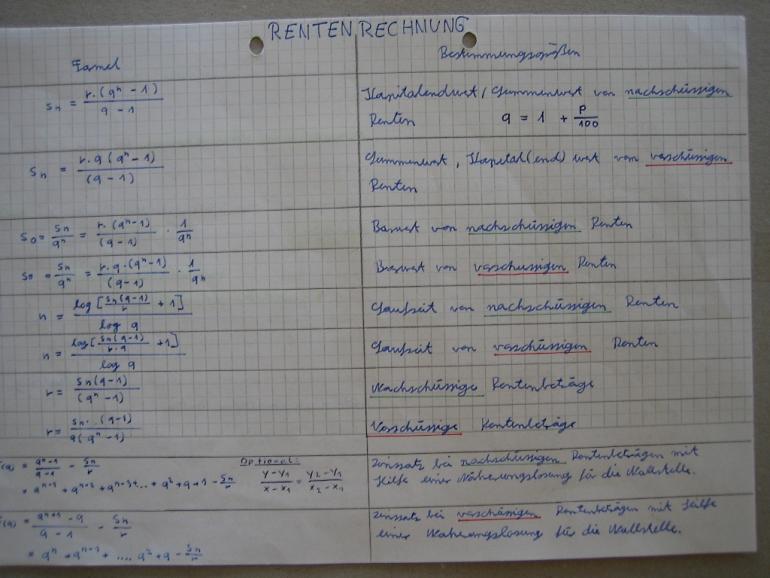 RENTENRECHNUNG
Formel
Bestimmungsgrößen
Sn = r·(qⁿ - 1) / q - 1
Kapitalendwert / Summenwert von nachschüssigen
Renten q = 1 + p/100
Sn = r·q (qⁿ - 1) / (q - 1)
Summenwert, Kapital(end)wert von vorschüssigen
Renten
S0 = Sn/qⁿ = r·(qⁿ-1) / (q-1) · 1/qⁿ
Barwert von nachschüssigen Renten
= Sn/qⁿ = r·q·(qⁿ-1) / (q-1) · 1/qⁿ
Barwert von vorschüssigen Renten
n = log [Sn(q-1)/r + 1] / log q
Laufzeit von nachschüssigen Renten
n = log [Sn(q-1)/r·q + 1] / log q
Laufzeit von vorschüssigen Renten
r = Sn(q-1) / (qⁿ-1)
Nachschüssige Rentenbeträge
r = Sn·(q-1) / q(qⁿ-1)
Vorschüssige Rentenbeträge
(q) = qⁿ-1 / q-1 - Sn/r
= qⁿ⁻¹ + qⁿ⁻² + qⁿ⁻³ + ... + q² + q + 1 - Sn/r
Optional:
y-y1 / x-x1 = y2-y1 / x2-x1
Zinssatz bei nachschüssigen Rentenbeträgen mit
Hilfe einer Näherungslösung für die Nullstelle.
(q) = qⁿ⁺¹ - q / q - 1 - Sn/r
= qⁿ + qⁿ⁻¹ + .... q² + q - Sn/r
Zinssatz bei vorschüssigen Rentenbeträgen mit Hilfe
einer Näherungslösung für die Nullstelle.